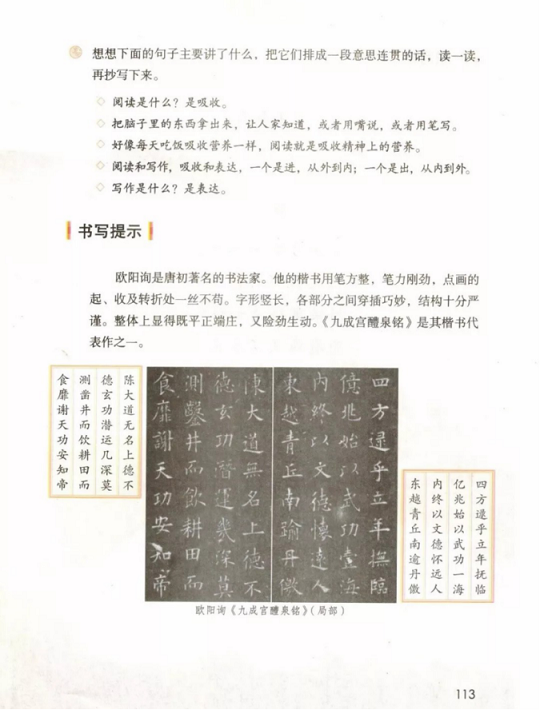 想想下面的句子主要讲了什么，把它们排成一段意思连贯的话，读一读，
再抄写下来。
阅读是什么？是吸收。
把脑子里的东西拿出来，让人家知道，或者用嘴说，或者用笔写。
好像每天吃饭吸收营养一样，阅读就是吸收精神上的营养。
阅读和写作，吸收和表达，一个是进，从外到内；一个是出，从内到外。
写作是什么？是表达。
书写提示
欧阳询是唐初著名的书法家。他的楷书用笔方整，笔力刚劲，点画的
起、收及转折处一丝不苟。字形竖长，各部分之间穿插巧妙，结构十分严
谨。整体上显得既平正端庄，又险劲生动。《九成宫醴泉铭》是其楷书代
表作之一。
四方逯乎立年抚临
亿兆始以武功一海
内终以文德怀远人
东越青丘南逾丹儌
陈大道无名上德不
德玄功潜运几深莫
测凿井而饮耕田而
食靡谢天功安知帝
四方逯乎立年撫臨
億兆始以武功壹海
内終以文德懷遠人
東越青丘南踰丹儌
陳大道無名上德不
德玄功潛運幾深莫
測鑿井而飲耕田而
食靡謝天功安知帝
欧阳询《九成宫醴泉铭》（局部）
113